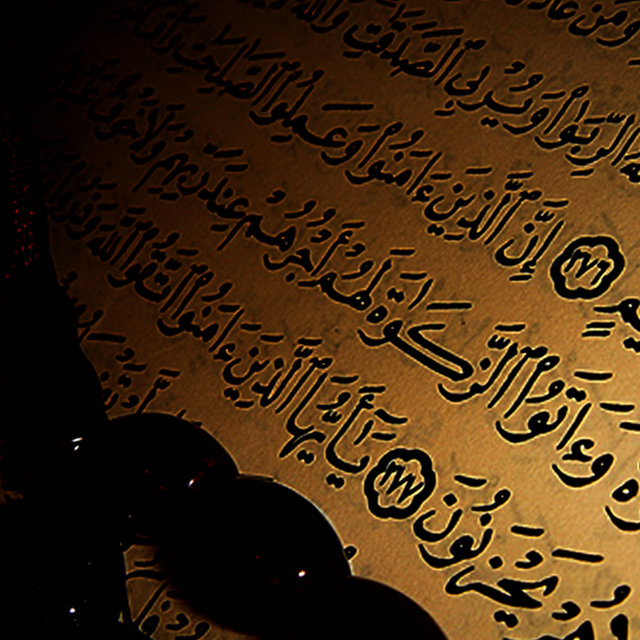 وَمَنْ عَادَ
الرِّبَوٰا۟ وَيُرْبِى ٱلصَّدَقَـٰتِ وَٱللَّهُ
٢٧٦ إِنَّ ٱلَّذِينَ ءَامَنُوا۟ وَعَمِلُوا۟ ٱلصَّـٰلِحَـٰتِ
وَءَاتَوُا۟ ٱلزَّكَوٰةَ لَهُمْ أَجْرُهُمْ عِندَ رَبِّهِمْ وَلَا خَوْفٌ
يَحْزَنُونَ ٢٧٧ يَـٰٓأَيُّهَا ٱلَّذِينَ ءَامَنُوا۟ ٱتَّقُوا۟ ٱللَّهَ وَذَرُوا۟